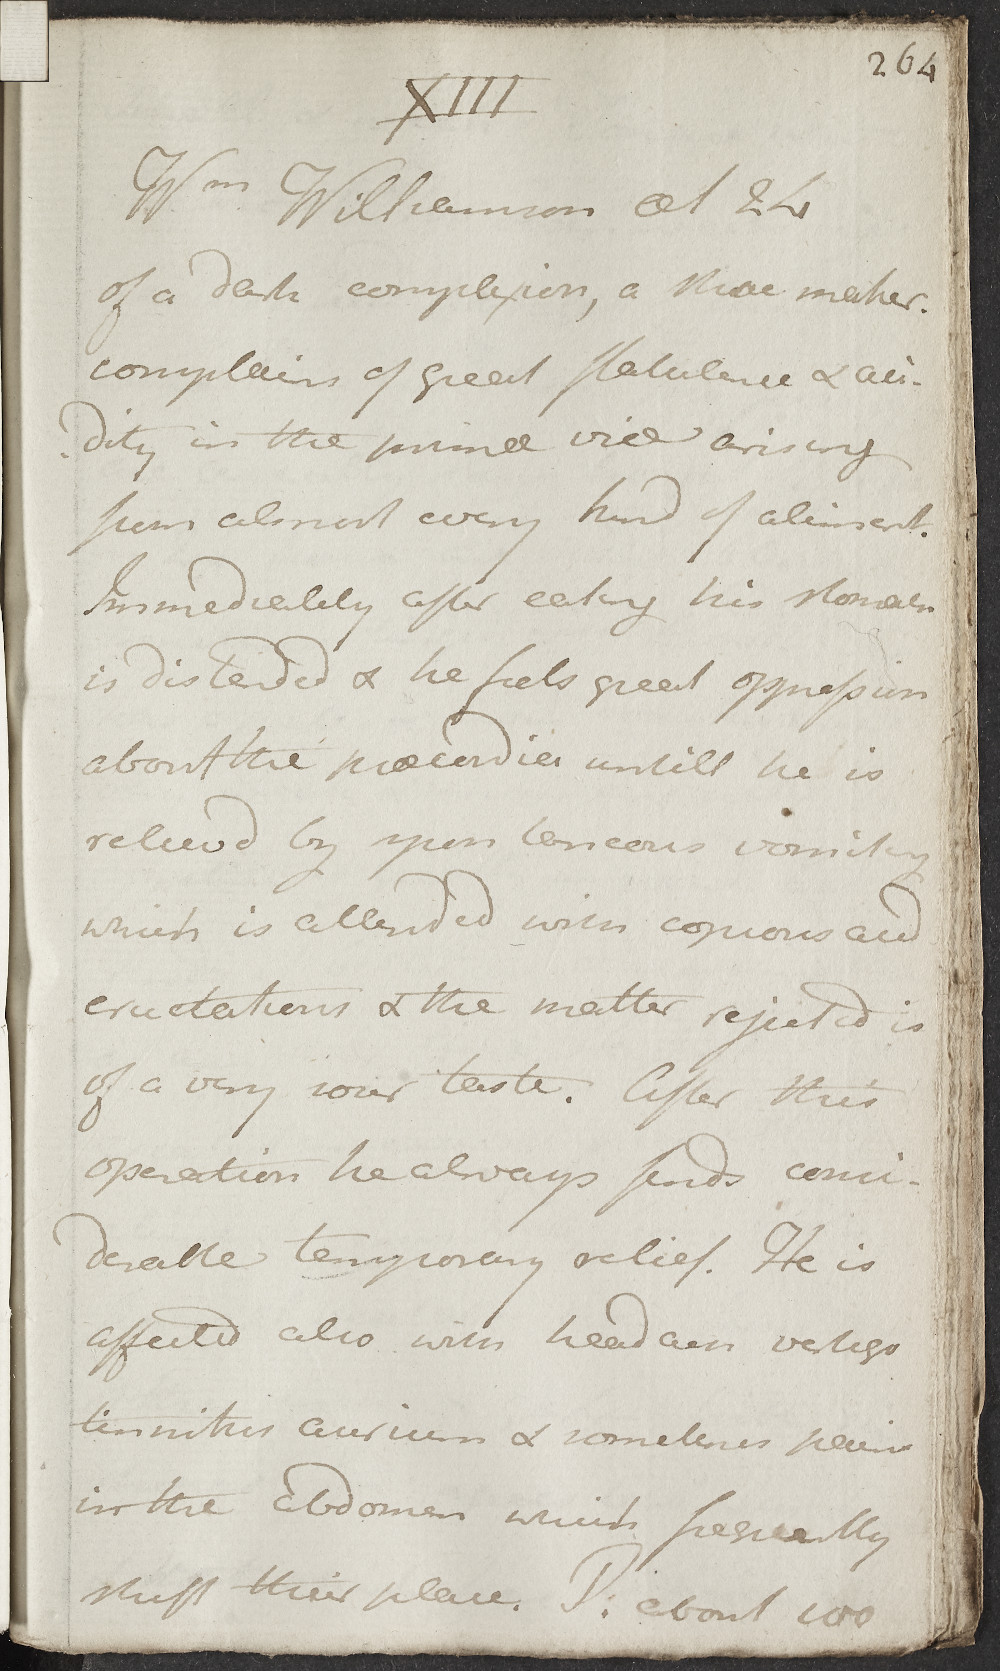 264
XIII
Wm Williamson æt 24
of a dark complexion, a shoe maker.
complains of great flatulence & aci-
dity in the primæ viæ arising
from almost every kind of aliment.
Immediately after eating his stomach
is distended & he feels great oppression
about the præcordia untill he is
relievd by spontaneous vomiting
which is attended with copious acid
eructations & the matter rejected is
of a very sour taste. After this
operation he always finds consi-
derable temporary relief. He is
affected also with headach vertigo
tinnitus aurium & sometimes pains
in the abdomen which frequently
shift their place. P. about 100